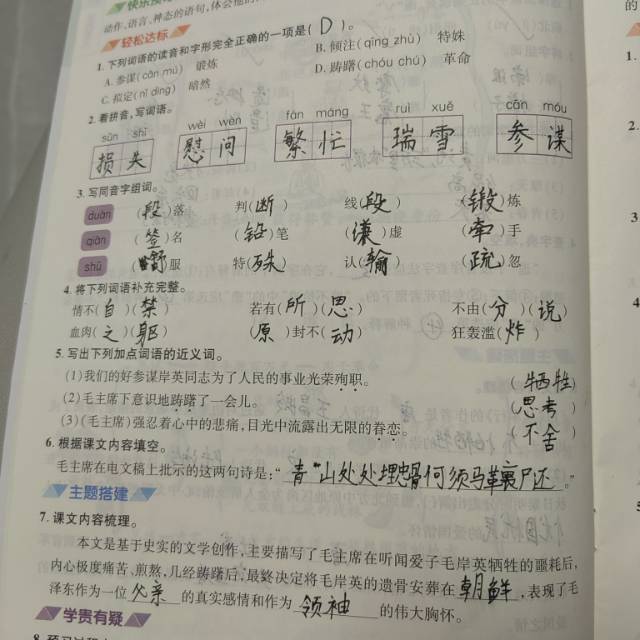 动作、语言、神态的语句,体会他的
轻松达标
1. 下列词语的读音和字形完全正确的一项是( D )。
A. 参谋(cān mú) 锻炼 B. 倾注(qīng zhù) 特姝
C. 拟定(nǐ dìng) 暗然 D. 踌躇(chóu chú) 革命
2. 看拼音,写词语。
sǔn shī wèi wèn fán máng ruì xuě cān móu
损 失 慰 问 繁 忙 瑞 雪 参 谋
3. 写同音字组词。
duàn (段)落 判(断) 线(段) (锻)炼
qiān (签)名 (铅)笔 (谦)虚 (牵)手
shū (舒)服 特(殊) 认(输) (疏)忽
4. 将下列词语补充完整。
情不(自)(禁) 若有(所)(思) 不由(分)(说)
血肉(之)(躯) (原)封不(动) 狂轰滥(炸)
5. 写出下列加点词语的近义词。
(1)我们的好参谋岸英同志为了人民的事业光荣殉职。 (牺牲)
(2)毛主席下意识地踌躇了一会儿。 (思考)
(3)(毛主席)强忍着心中的悲痛,目光中流露出无限的眷恋。 (不舍)
6. 根据课文内容填空。
毛主席在电文稿上批示的这两句诗是:“青山处处埋忠骨何须马革裹尸还。”
主题搭建
7. 课文内容梳理。
本文是基于史实的文学创作,主要描写了毛主席在听闻爱子毛岸英牺牲的噩耗后,
内心极度痛苦、煎熬,几经踌躇后,最终决定将毛岸英的遗骨安葬在朝鲜,表现了毛
泽东作为一位父亲的真实感情和作为领袖的伟大胸怀。
学贵有疑